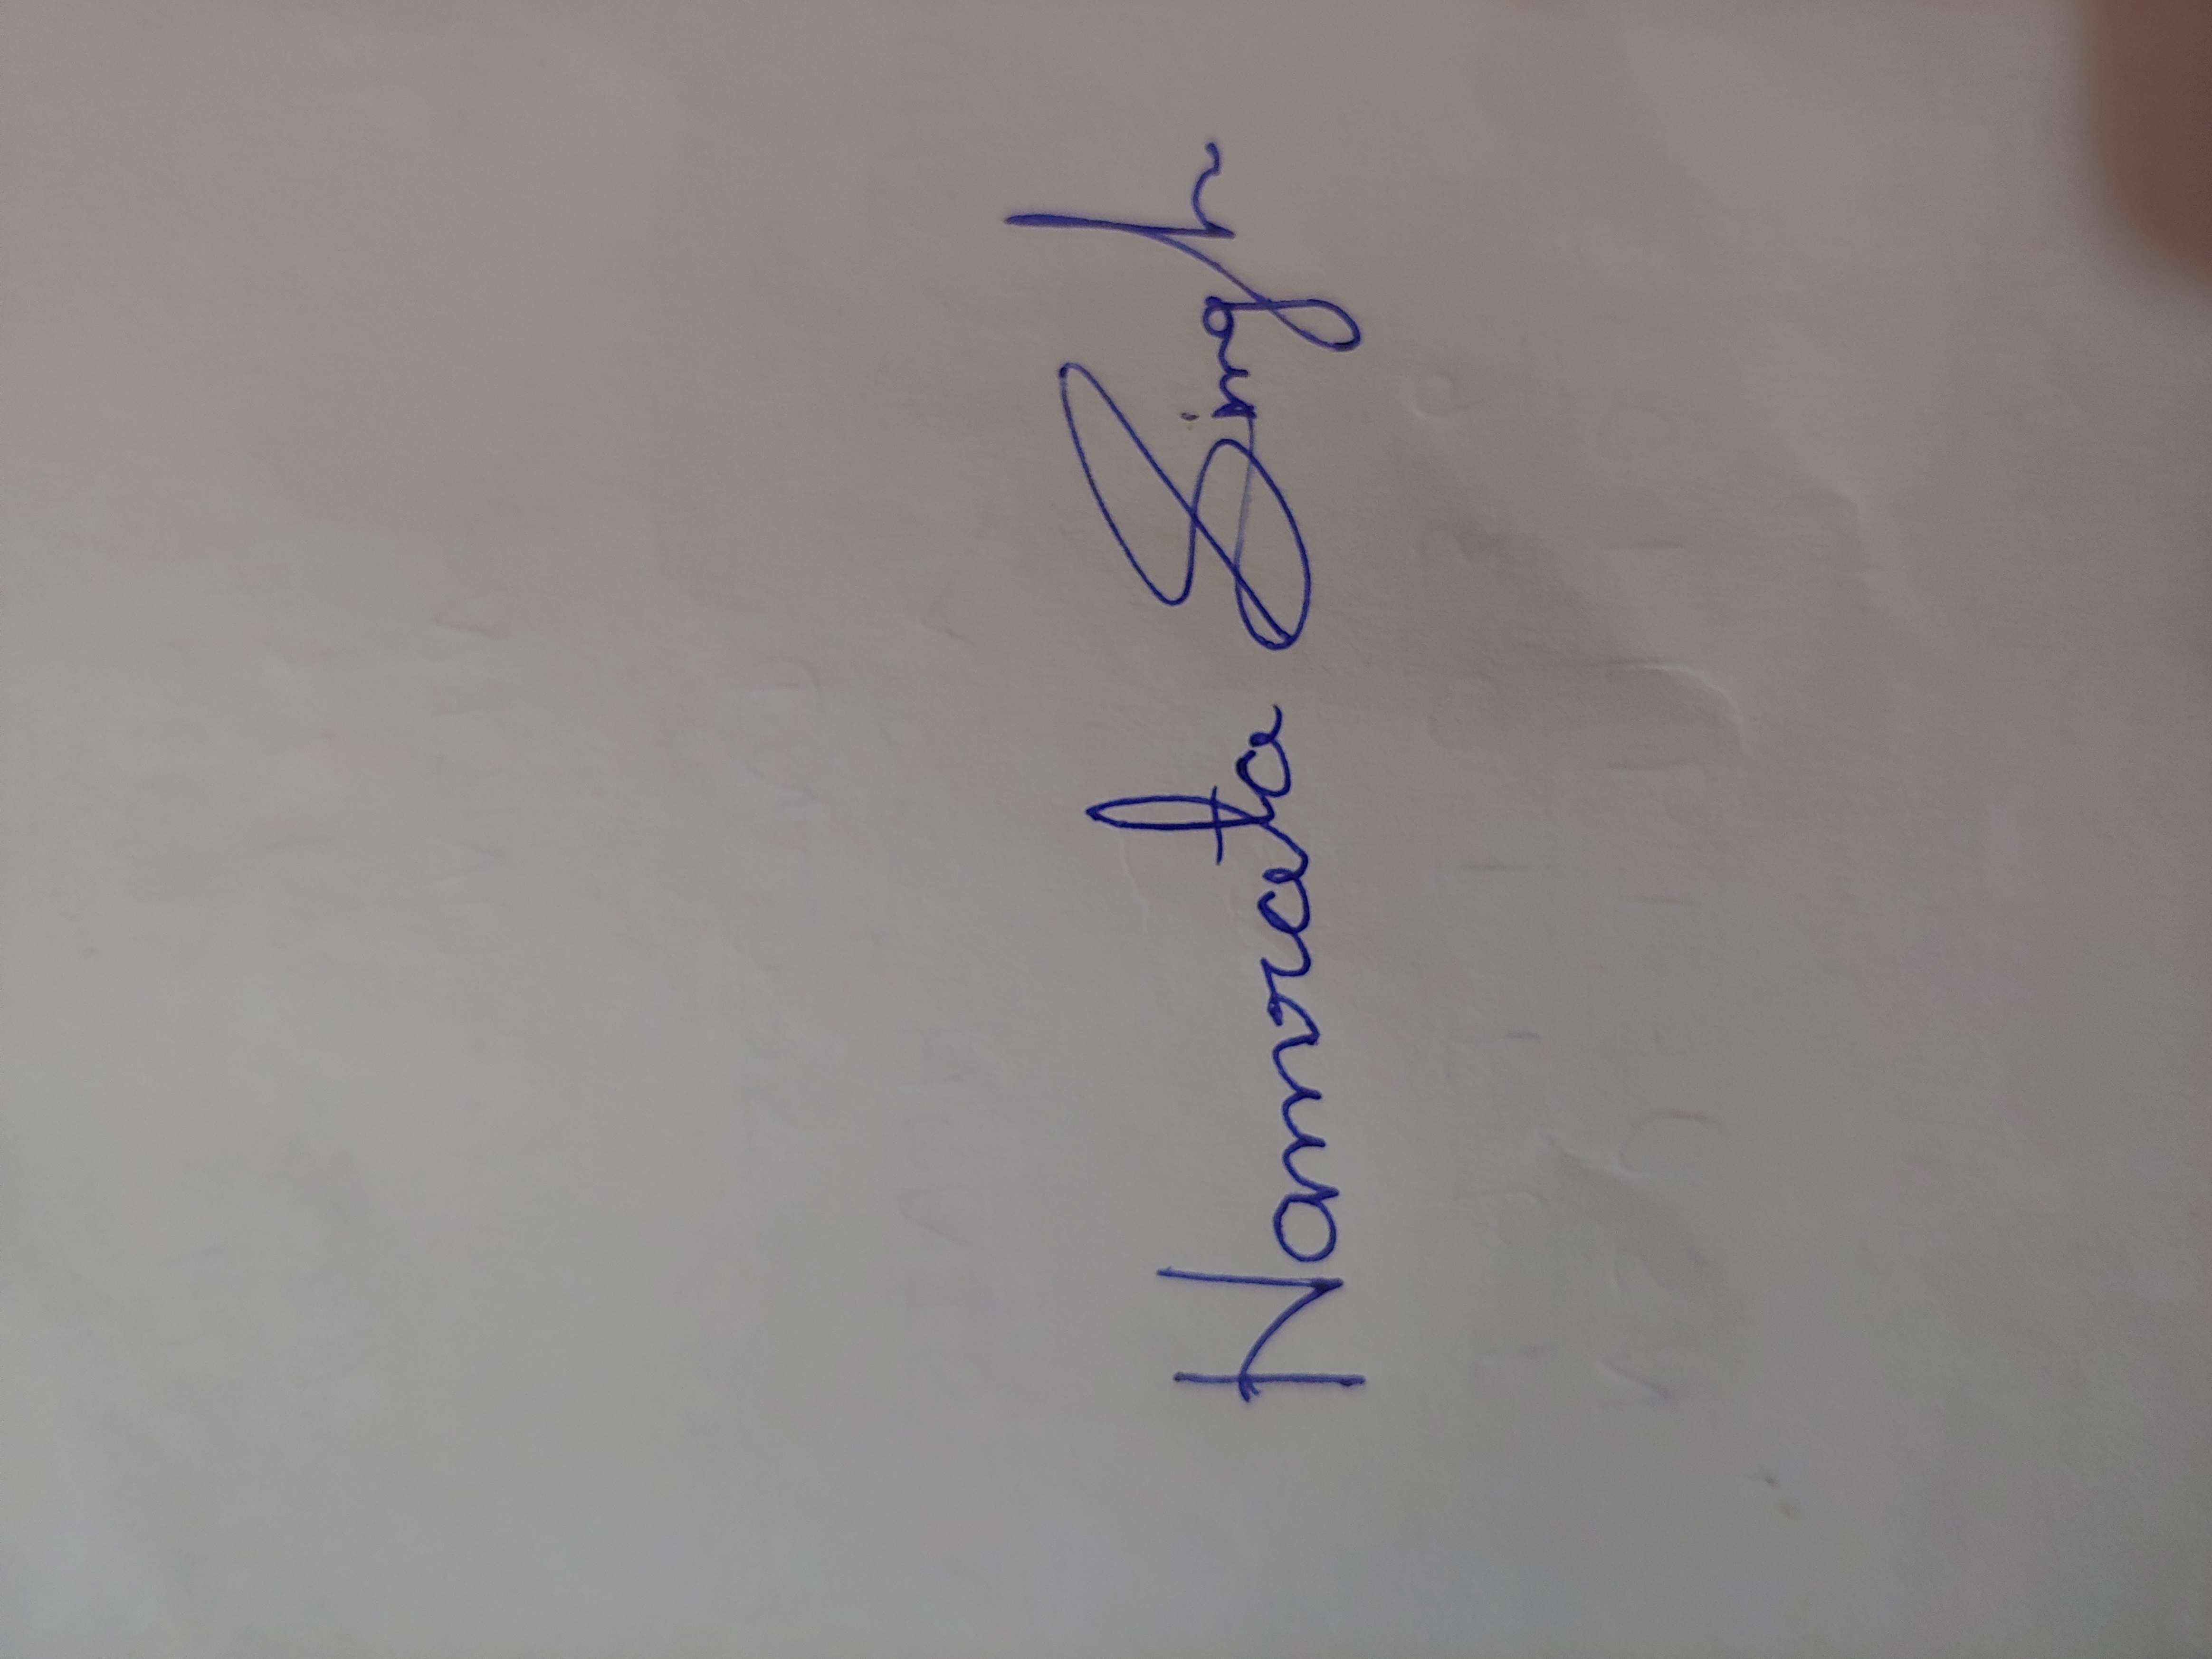 Namrata Singh